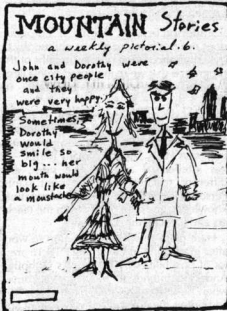 MOUNTAIN Stories
a weekly pictorial.6.
John and Dorothy were
once city people
and they
were very happy.
Sometimes,
Dorothy
would
smile so
big... her
mouth would
look like
a moustache